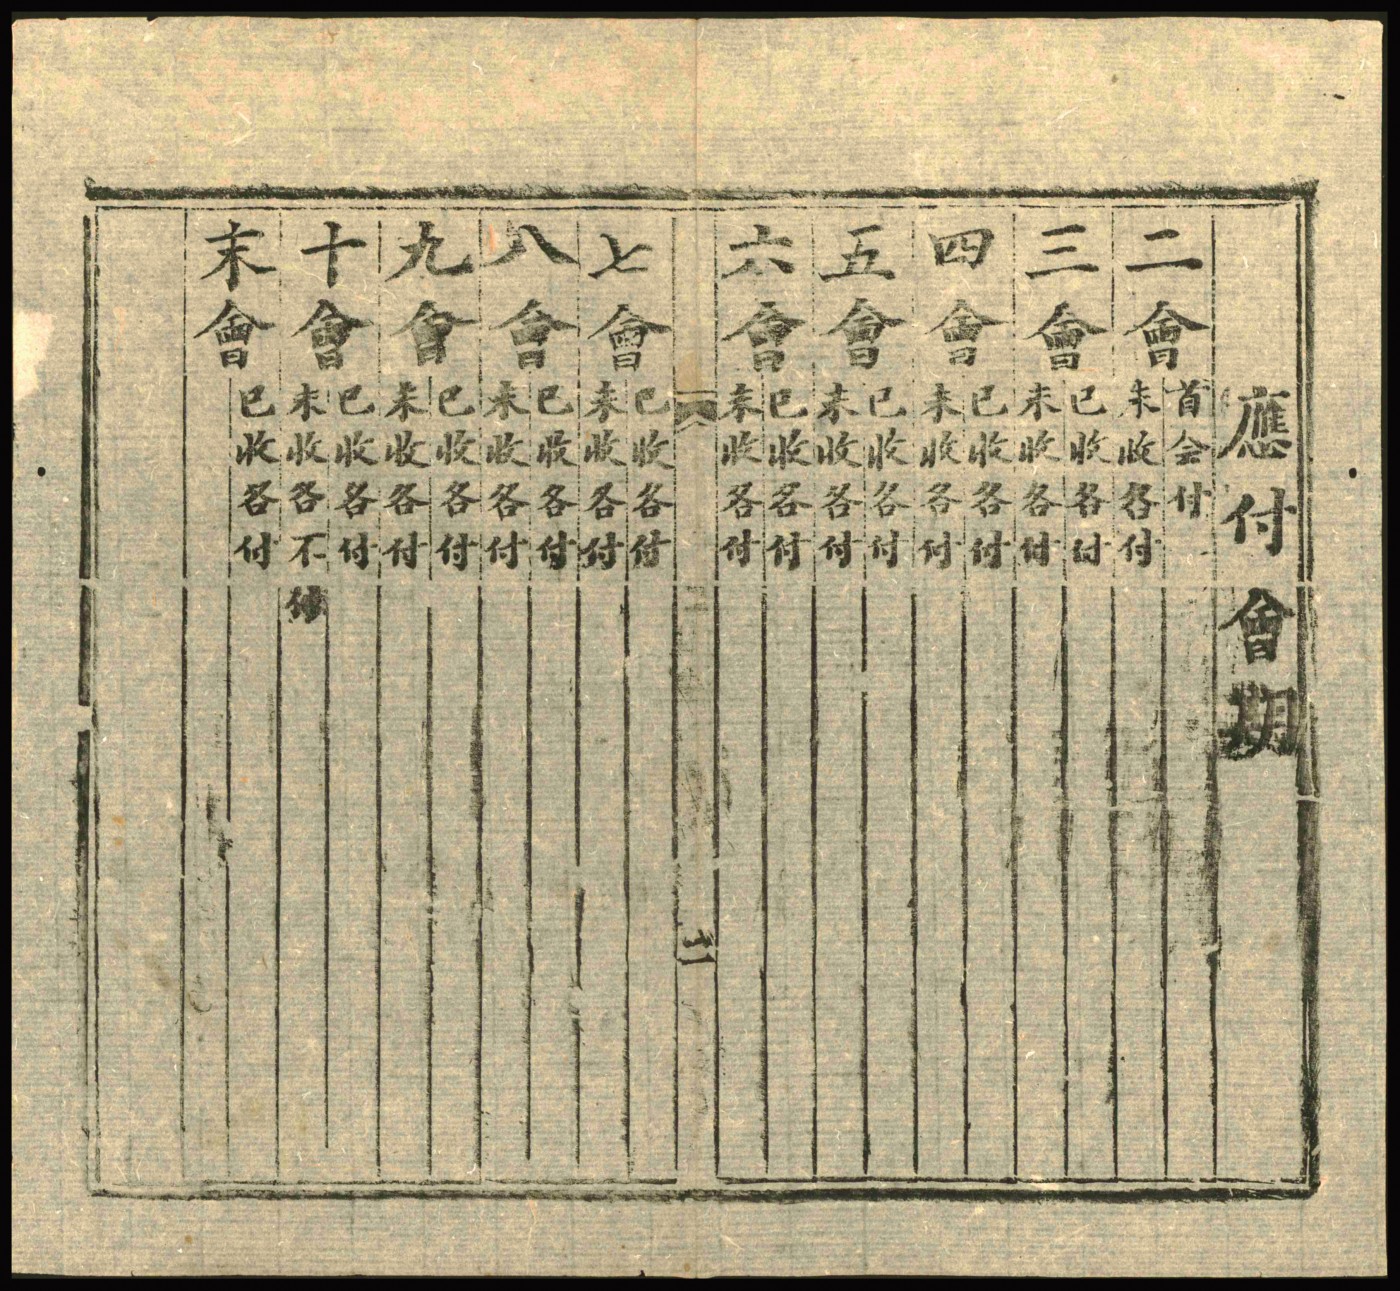 應付會期
二會
首会付
未收各付
三會
已收各付
未收各付
四會
已收各付
未收各付
五會
已收各付
未收各付
六會
已收各付
未收各付
七會
已收各付
未收各付
八會
已收各付
未收各付
九會
已收各付
未收各付
十會
已收各付
未收各不付
末會
已收各付